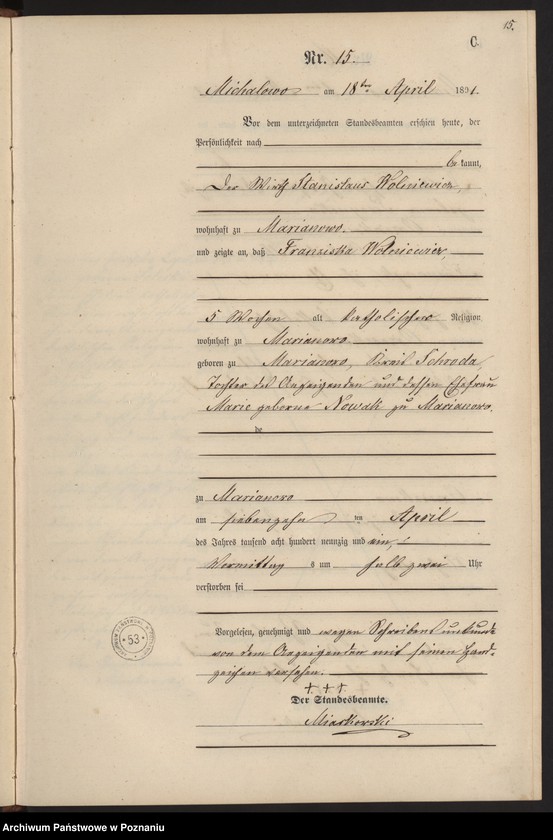 15.
C.
Nr. 15.
Michalowo am 18ten April 1891.
Vor dem unterzeichneten Standesbeamten erschien heute, der
Persönlichkeit nach
bekannt,
der Wirth Stanislaus Wolniewicz,
wohnhaft zu Marianowo.
und zeigte an, daß Franziska Wolniewicz,
5 Wochen alt katholischer Religion
wohnhaft zu Marianowo
geboren zu Marianowo, Kreis Schroda,
Tochter des Anzeigenden und dessen Ehefrau
Marie geborne Nowak zu Marianowo.
zu Marianowo
am siebenzehn ten April
des Jahres tausend acht hundert neunzig und ein,
Vormittags um halb zwei Uhr
verstorben sei
Vorgelesen, genehmigt und wegen Schreibensunkunde
von dem Anzeigenden mit seinen Hand-
zeichen versehen.
+++
Der Standesbeamte.
Miaskowski
ARCHIWUM PAŃSTWOWE W POZNANIU
* 53 *
Archiwum Państwowe w Poznaniu